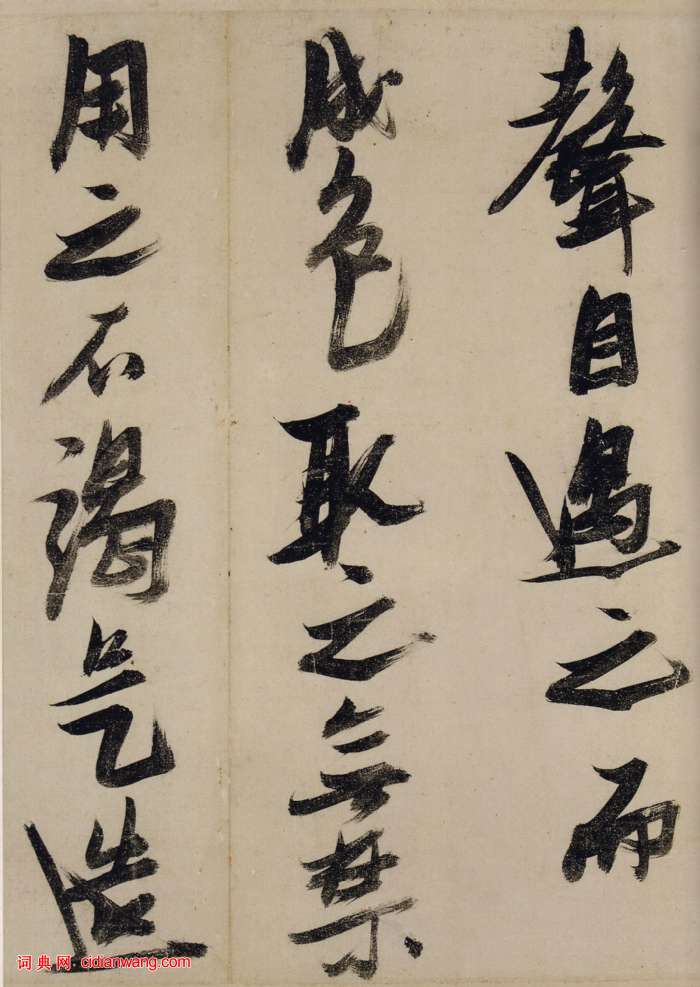 聲目遇之而
成色取之無禁
用之不竭是造
词典网：cidianwang.com